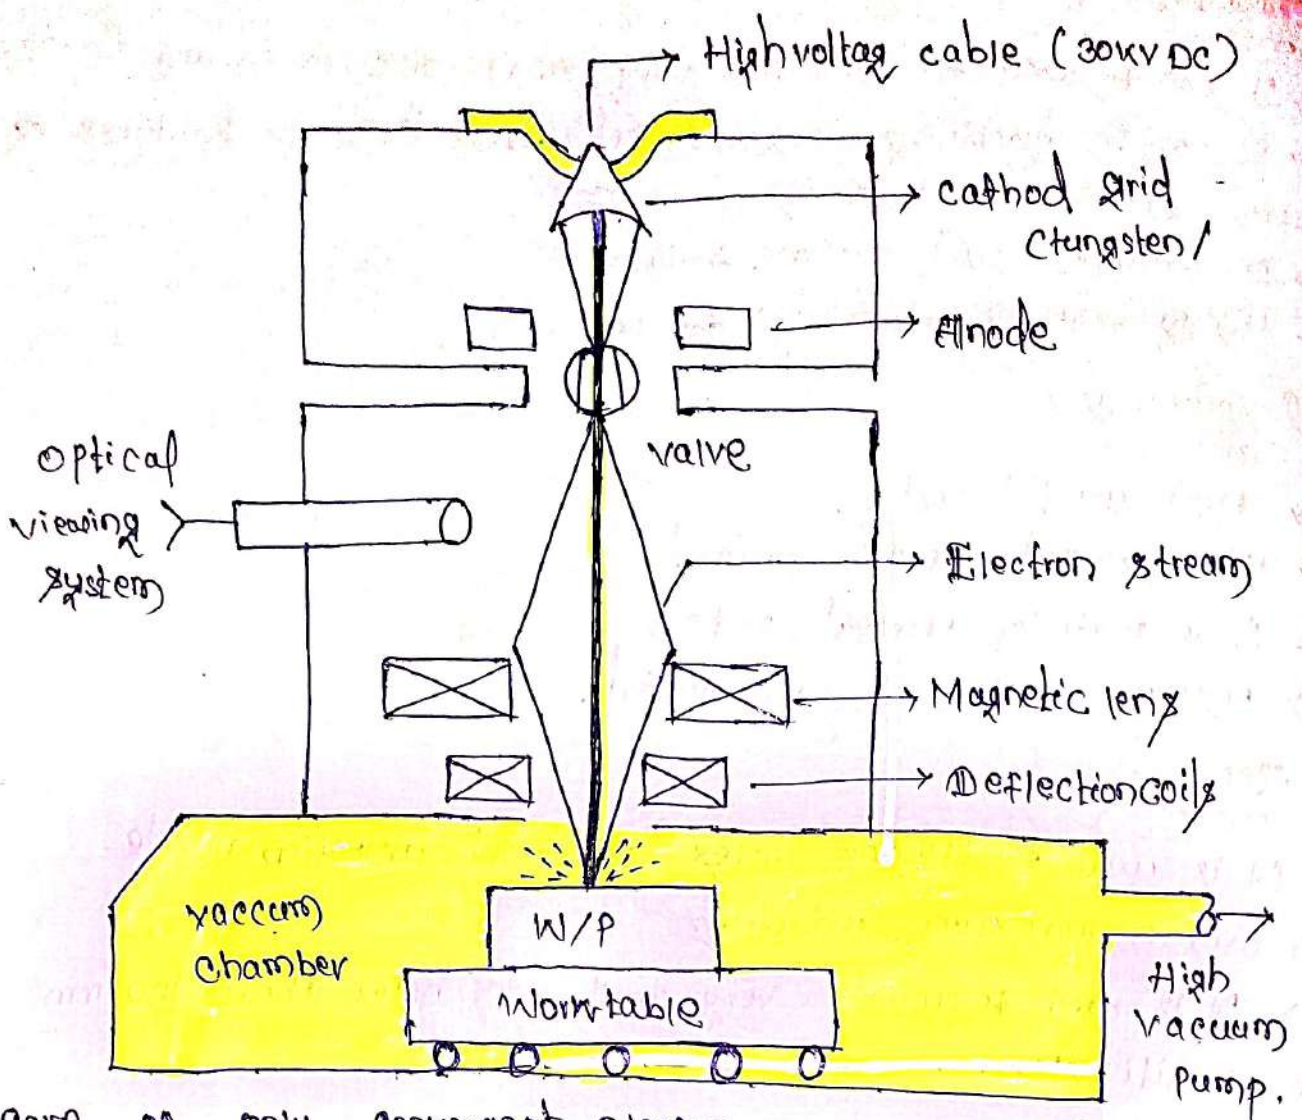 High voltag cable (30KV DC)
Cathod grid
(tungsten)
Anode
valve
Optical
viewing
system
Electron stream
Magnetic lens
Deflection coils
vaccum
chamber
W/P
Work table
High
Vacuum
pump.